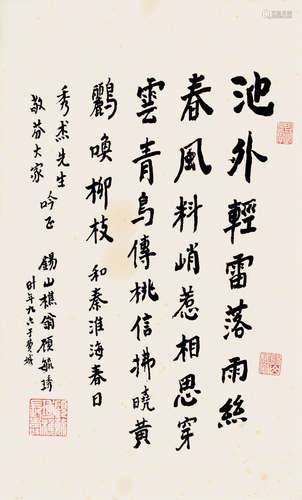 池外輕雷落雨絲
春風料峭惹相思穿
雲青鳥傳桃信拂曉黃
鸝喚柳枝 和秦淮海春日
秀杰先生
敬芬大家 吟正
錫山樵翁顧毓琇
時年九六于費城